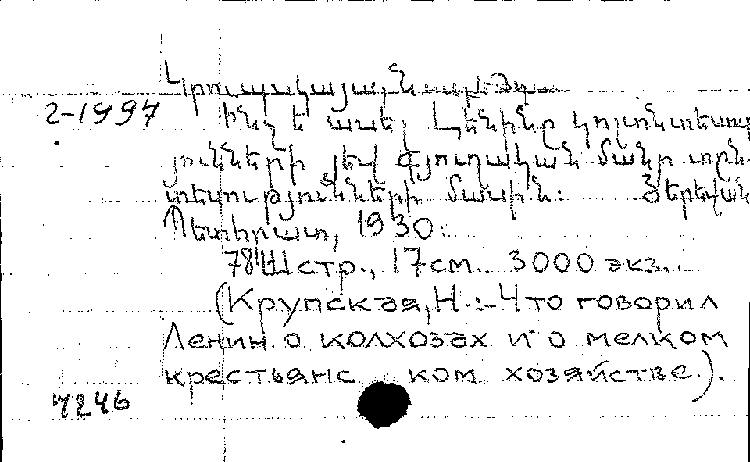 Կրուպսկայա, Ն.
2-1997 Ինչ է ասել Լենինը կոլտնտեսու
յունների յեվ գյուղական մանր տըն
տեսությունների մասին: Յերեվան
Պետհրատ, 1930:
78 стр., 17 см. 3000 экз.
(Крупская, Н. :- Что говорил
Ленин о колхозах и о мелком
крестьянс ком хозяйстве.).
7246